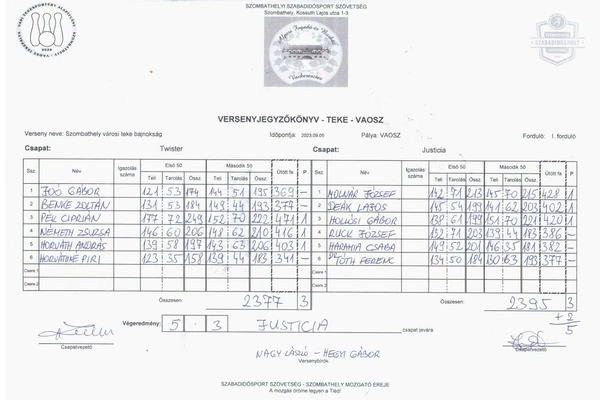 SZOMBATHELYI SZABADIDŐSPORT SZÖVETSÉG
Szombathely, Kossuth Lajos utca 1-3
VERSENYJEGYZŐKÖNYV - TEKE - VAOSZ
Verseny neve: Szombathely városi teke bajnokság Időpontja: 2023.09.05 Pálya: VAOSZ Forduló: I. forduló
Csapat: Twister Csapat: Justicia
Ssz. Név Igazolás száma Első 50 Második 50 Ütött fa P Ssz. Név Igazolás száma Első 50 Második 50 Ütött fa P
Teli Tarolás Össz. Teli Tarolás Össz. Teli Tarolás Össz. Teli Tarolás Össz.
1 JOÓ GÁBOR 121 53 174 144 51 195 369 - 1 MOLNÁR JÓZSEF 142 71 213 145 70 215 428 1
2 BENKE ZOLTÁN 131 53 184 149 44 193 377 - 2 DEÁK LAJOS 145 54 199 141 62 203 402 1
3 PÉL CIPRIÁN 177 72 249 152 70 222 471 1 3 HOLLÓSI GÁBOR 138 61 199 151 70 221 420 1
4 NÉMETH ZSUZSA 146 60 206 148 62 210 416 1 4 RUCK JÓZSEF 132 71 203 139 44 183 386 -
5 HORVÁTH ANDRÁS 139 58 197 143 63 206 403 1 5 HARAMIA CSABA 149 52 201 146 35 181 382 -
6 HORVÁTHNÉ PIRI 123 35 158 139 44 183 341 - 6 DR TÓTH FERENC 134 50 184 130 63 193 377 -
Csere 1 Csere 1
Csere 2 Csere 2
Összesen: 2377 3 Összesen: 2395 3
+2
5
Végeredmény: 5 - 3 JUSTICIA csapat javára
Csapatvezető Csapatvezető
NAGY LÁSZLÓ - HEGYI GÁBOR
Versenybírók
SZABADIDŐSPORT SZÖVETSÉG - SZOMBATHELY MOZGATÓ EREJE
A mozgás öröme legyen a Tiéd!